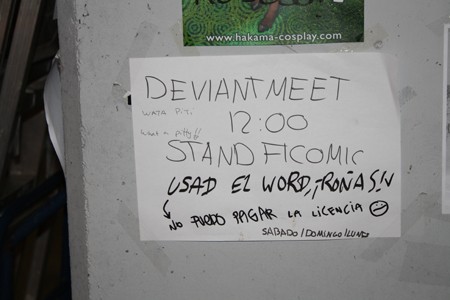 www.hakama-cosplay.com
DEVIANTMEET
WATA PIT.
12:00
what a pitty!!
STAND FICOMIC
USAD EL WORD, ¡ROÑAS!
NO PUEDO PAGAR LA LICENCIA
SABADO/DOMINGO/LUNES